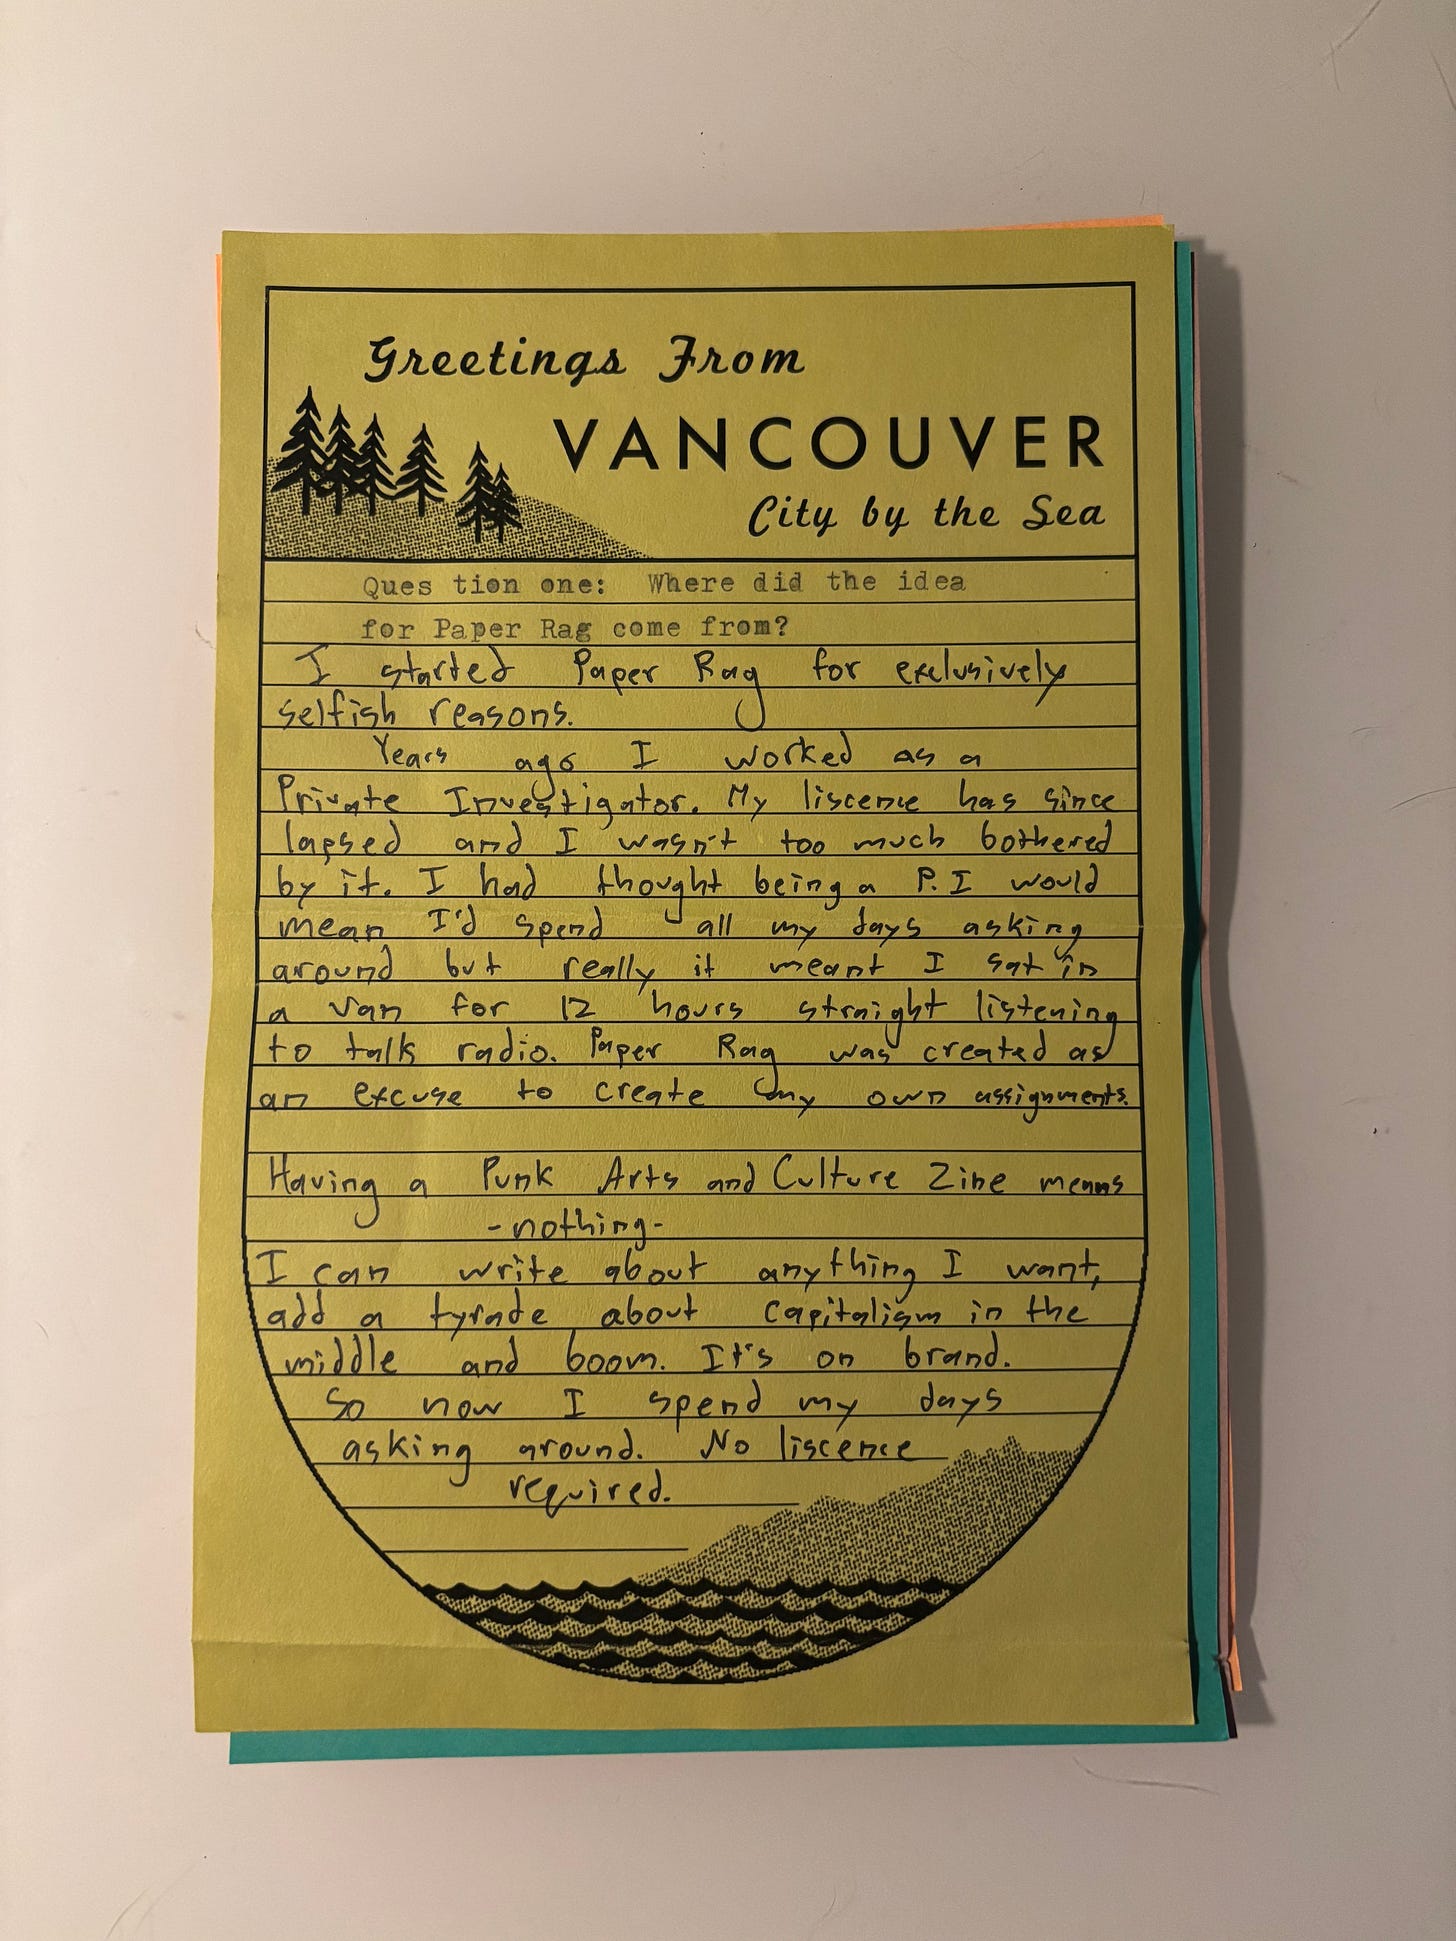 Greetings From
VANCOUVER
City by the Sea
Ques tion one: Where did the idea
for Paper Rag come from?
I started Paper Rag for exclusively
selfish reasons.
Years ago I worked as a
Private Investigator. My liscence has since
lapsed and I wasn't too much bothered
by it. I had thought being a P.I would
mean I'd spend all my days asking
around but really it meant I sat in
a van for 12 hours straight listening
to talk radio. Paper Rag was created as
an excuse to create my own assignments.
Having a Punk Arts and Culture Zine means
-nothing-
I can write about anything I want,
add a tyrade about capitalism in the
middle and boom. It's on brand.
So now I spend my days
asking around. No liscence
required.